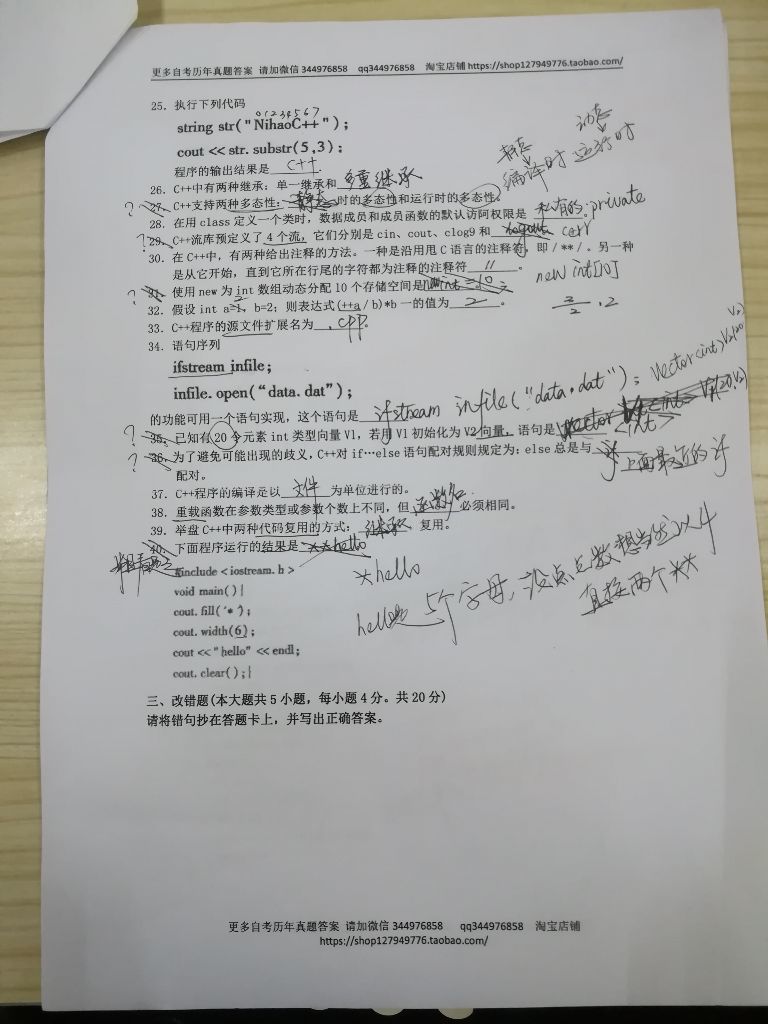 更多自考历年真题答案 请加微信 344976858 qq344976858 淘宝店铺 https://shop127949776.taobao.com/
25. 执行下列代码
01234567
string str("NihaoC++");
cout << str. substr(5,3);
程序的输出结果是 C++
静态 动态
编译时 运行时
26. C++中有两种继承：单一继承和 多重继承
? 27. C++支持两种多态性： 静态 时的多态性和运行时的多态性。
28. 在用 class 定义一个类时，数据成员和成员函数的默认访问权限是 私有的. private
? 29. C++流库预定义了 4 个流，它们分别是 cin、cout、clog9 和 cerr
30. 在 C++中，有两种给出注释的方法。一种是沿用甩 C 语言的注释符，即/**/。另一种
是从它开始，直到它所在行尾的字符都为注释的注释符 // 。
new int[10]
31. 使用 new 为 int 数组动态分配 10 个存储空间是 。
32. 假设 int a=1，b=2；则表达式(++a / b)*b 一的值为 2 。
2
33. C++程序的源文件扩展名为 .cpp。
34. 语句序列
ifstream infile;
infile. open("data. dat");
的功能可用一个语句实现，这个语句是 ifstream infile("data.dat");
? 35. 已知有 20 个元素 int 类型向量 V1，若用 V1 初始化为 V2 向量，语句是
vector<int>V2(20
V2)
? 36. 为了避免可能出现的歧义，C++对 if…else 语句配对规则规定为：else 总是与 上面最近的 if
配对。
37. C++程序的编译是以 文件 为单位进行的。
38. 重载函数在参数类型或参数个数上不同，但 函数名 必须相同。
39. 举盘 C++中两种代码复用的方式： 继承 复用。
40. 下面程序运行的结果是 **hello
#include <iostream. h>
*hello
void main(){
cout. fill('*');
hello是 5个字母,
直接两个**
cout. width(6);
cout <<"hello" <<endl;
cout. clear();}
三、改错题(本大题共 5 小题，每小题 4 分。共 20 分)
请将错句抄在答题卡上，并写出正确答案。
更多自考历年真题答案 请加微信 344976858 qq344976858 淘宝店铺
https://shop127949776.taobao.com/